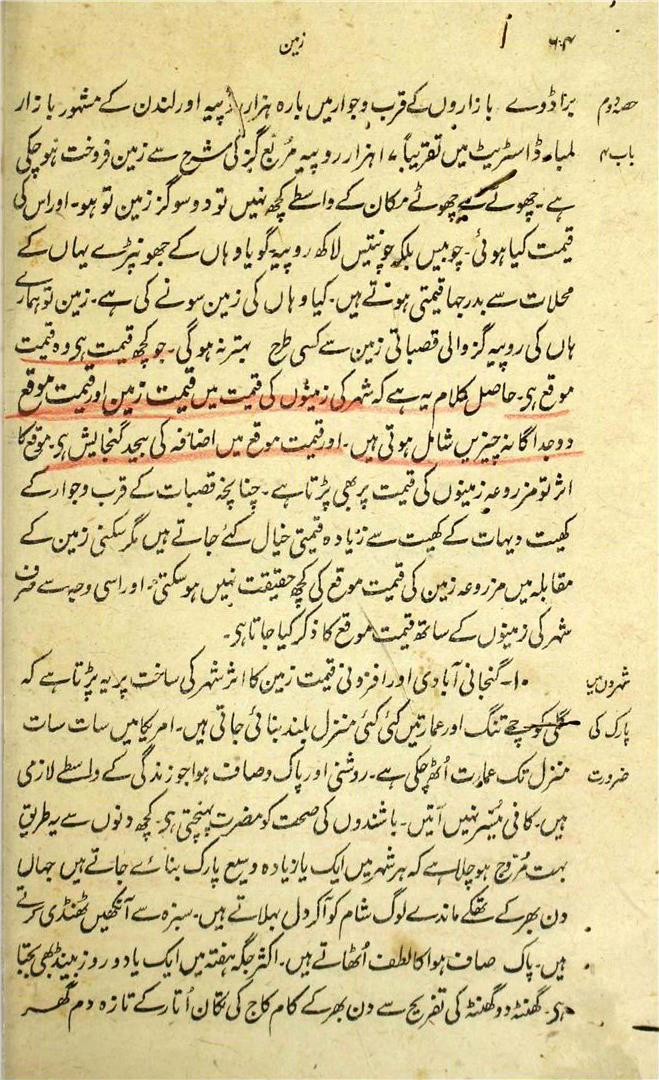 ۶۰۴
زمین
حصہ دوم
براڈوے بازاروں کے قرب وجوار میں بارہ ہزار روپیہ اور لندن کے مشہور بازار
باب ۴
لمباءڈ اسٹریٹ میں تقریباً ۱۷ ہزار روپیہ مربع گز کی شرح سے زمین فروخت ہوچکی
ہے۔ چھوٹے سے چھوٹے مکان کے واسطے کچھ نہیں تو دو سو گز زمین تو ہو۔ اور اس کی
قیمت کیا ہوئی۔ چوبیس بلکہ چونتیس لاکھ روپیہ۔ گویا وہاں کے جھونپڑے یہاں کے
محلات سے بدرجہا قیمتی ہوتے ہیں۔ کیا وہاں کی زمین سونے کی ہے۔ زمین تو ہمارے
ہاں کی روپیہ گز والی قصباتی زمین سے کسی طح بہتر نہ ہوگی۔ جو کچھ قیمت ہی وہ قیمت
موقع ہی۔ حاصل کلام یہ ہے کہ شہر کی زمینوں کی قیمت میں قیمت زمین اور قیمت موقع
دو جداگانہ چیزیں شامل ہوتی ہیں۔ اور قیمت موقع میں اضافہ کی بیحد گنجایش ہی۔ موقع کا
اثر تو مزروعہ زمینوں کی قیمت پر بھی پڑتا ہے۔ چنانچہ قصبات کے قرب وجوار کے
کھیت دیہات کے کھیت سے زیادہ قیمتی خیال کئے جاتے ہیں مگر سکنی زمین کے
مقابلہ میں مزروعہ زمین کی قیمت موقع کی کچھ حقیقت نہیں ہوسکتی۔ اور اسی وجہ سے صرف
شہر کی زمینوں کے ساتھ قیمت موقع کا ذکر کیا جاتا ہی۔
شہروں میں
۱۰۔ گنجانی آبادی اور افزونی قیمت زمین کا اثر شہر کی ساخت پر یہ پڑتا ہے کہ
پارک کی
گلی کوچے تنگ اور عمارتیں کئی کئی منزل بلند بنائی جاتی ہیں۔ امریکا میں سات سات
ضرورت
منزل تک عمارت اُٹھ چکی ہے۔ روشنی اور پاک و صاف ہوا جو زندگی کے واسطے لازمی
ہیں۔ کافی میسر نہیں آتیں۔ باشندوں کی صحت کو مضرت پہنچتی ہی۔ کچھ دنوں سے یہ طریق
بہت مُروّج ہو چلا ہے کہ ہر شہر میں ایک یا زیادہ وسیع پارک بنائے جاتے ہیں جہاں
دن بھر کے تھکے ماندے لوگ شام کو آکر دل بہلاتے ہیں۔ سبزہ سے آنکھیں ٹھنڈی کرتے
ہیں۔ پاک صاف ہوا کا لطف اُٹھاتے ہیں۔ اکثر جگہ ہفتہ میں ایک یا دو روز بینڈ بھی بجتا
ہی۔ گھنٹہ دو گھنٹہ کی تفریح سے دن بھر کے کام کاج کی تکان اُتار کے تازہ دم گھر